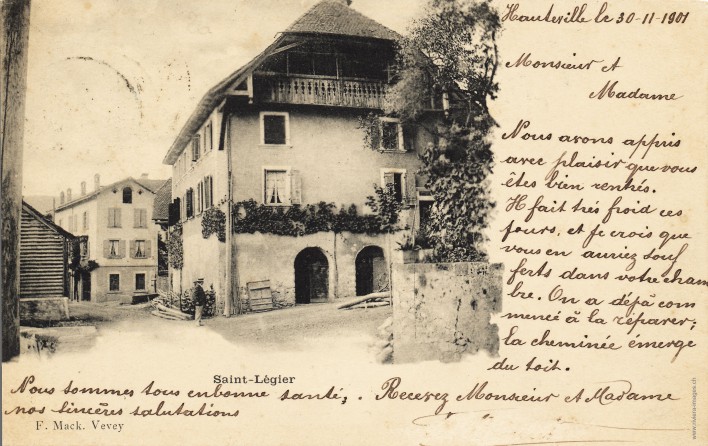 Hauteville le 30-11-1901
Monsieur et
Madame
Nous avons appris
avec plaisir que vous
êtes bien rentrés.
Il fait très froid ces
jours, et je crois que
vous en auriez souf
ferts dans votre cham
bre. On a déjà com
mencé à la réparer;
la cheminée émerge
du toit.
Saint-Légier
Nous sommes tous en bonne santé,. Recevez Monsieur et Madame
nos sincères salutations
F. Mack. Vevey
www.riviera-images.ch